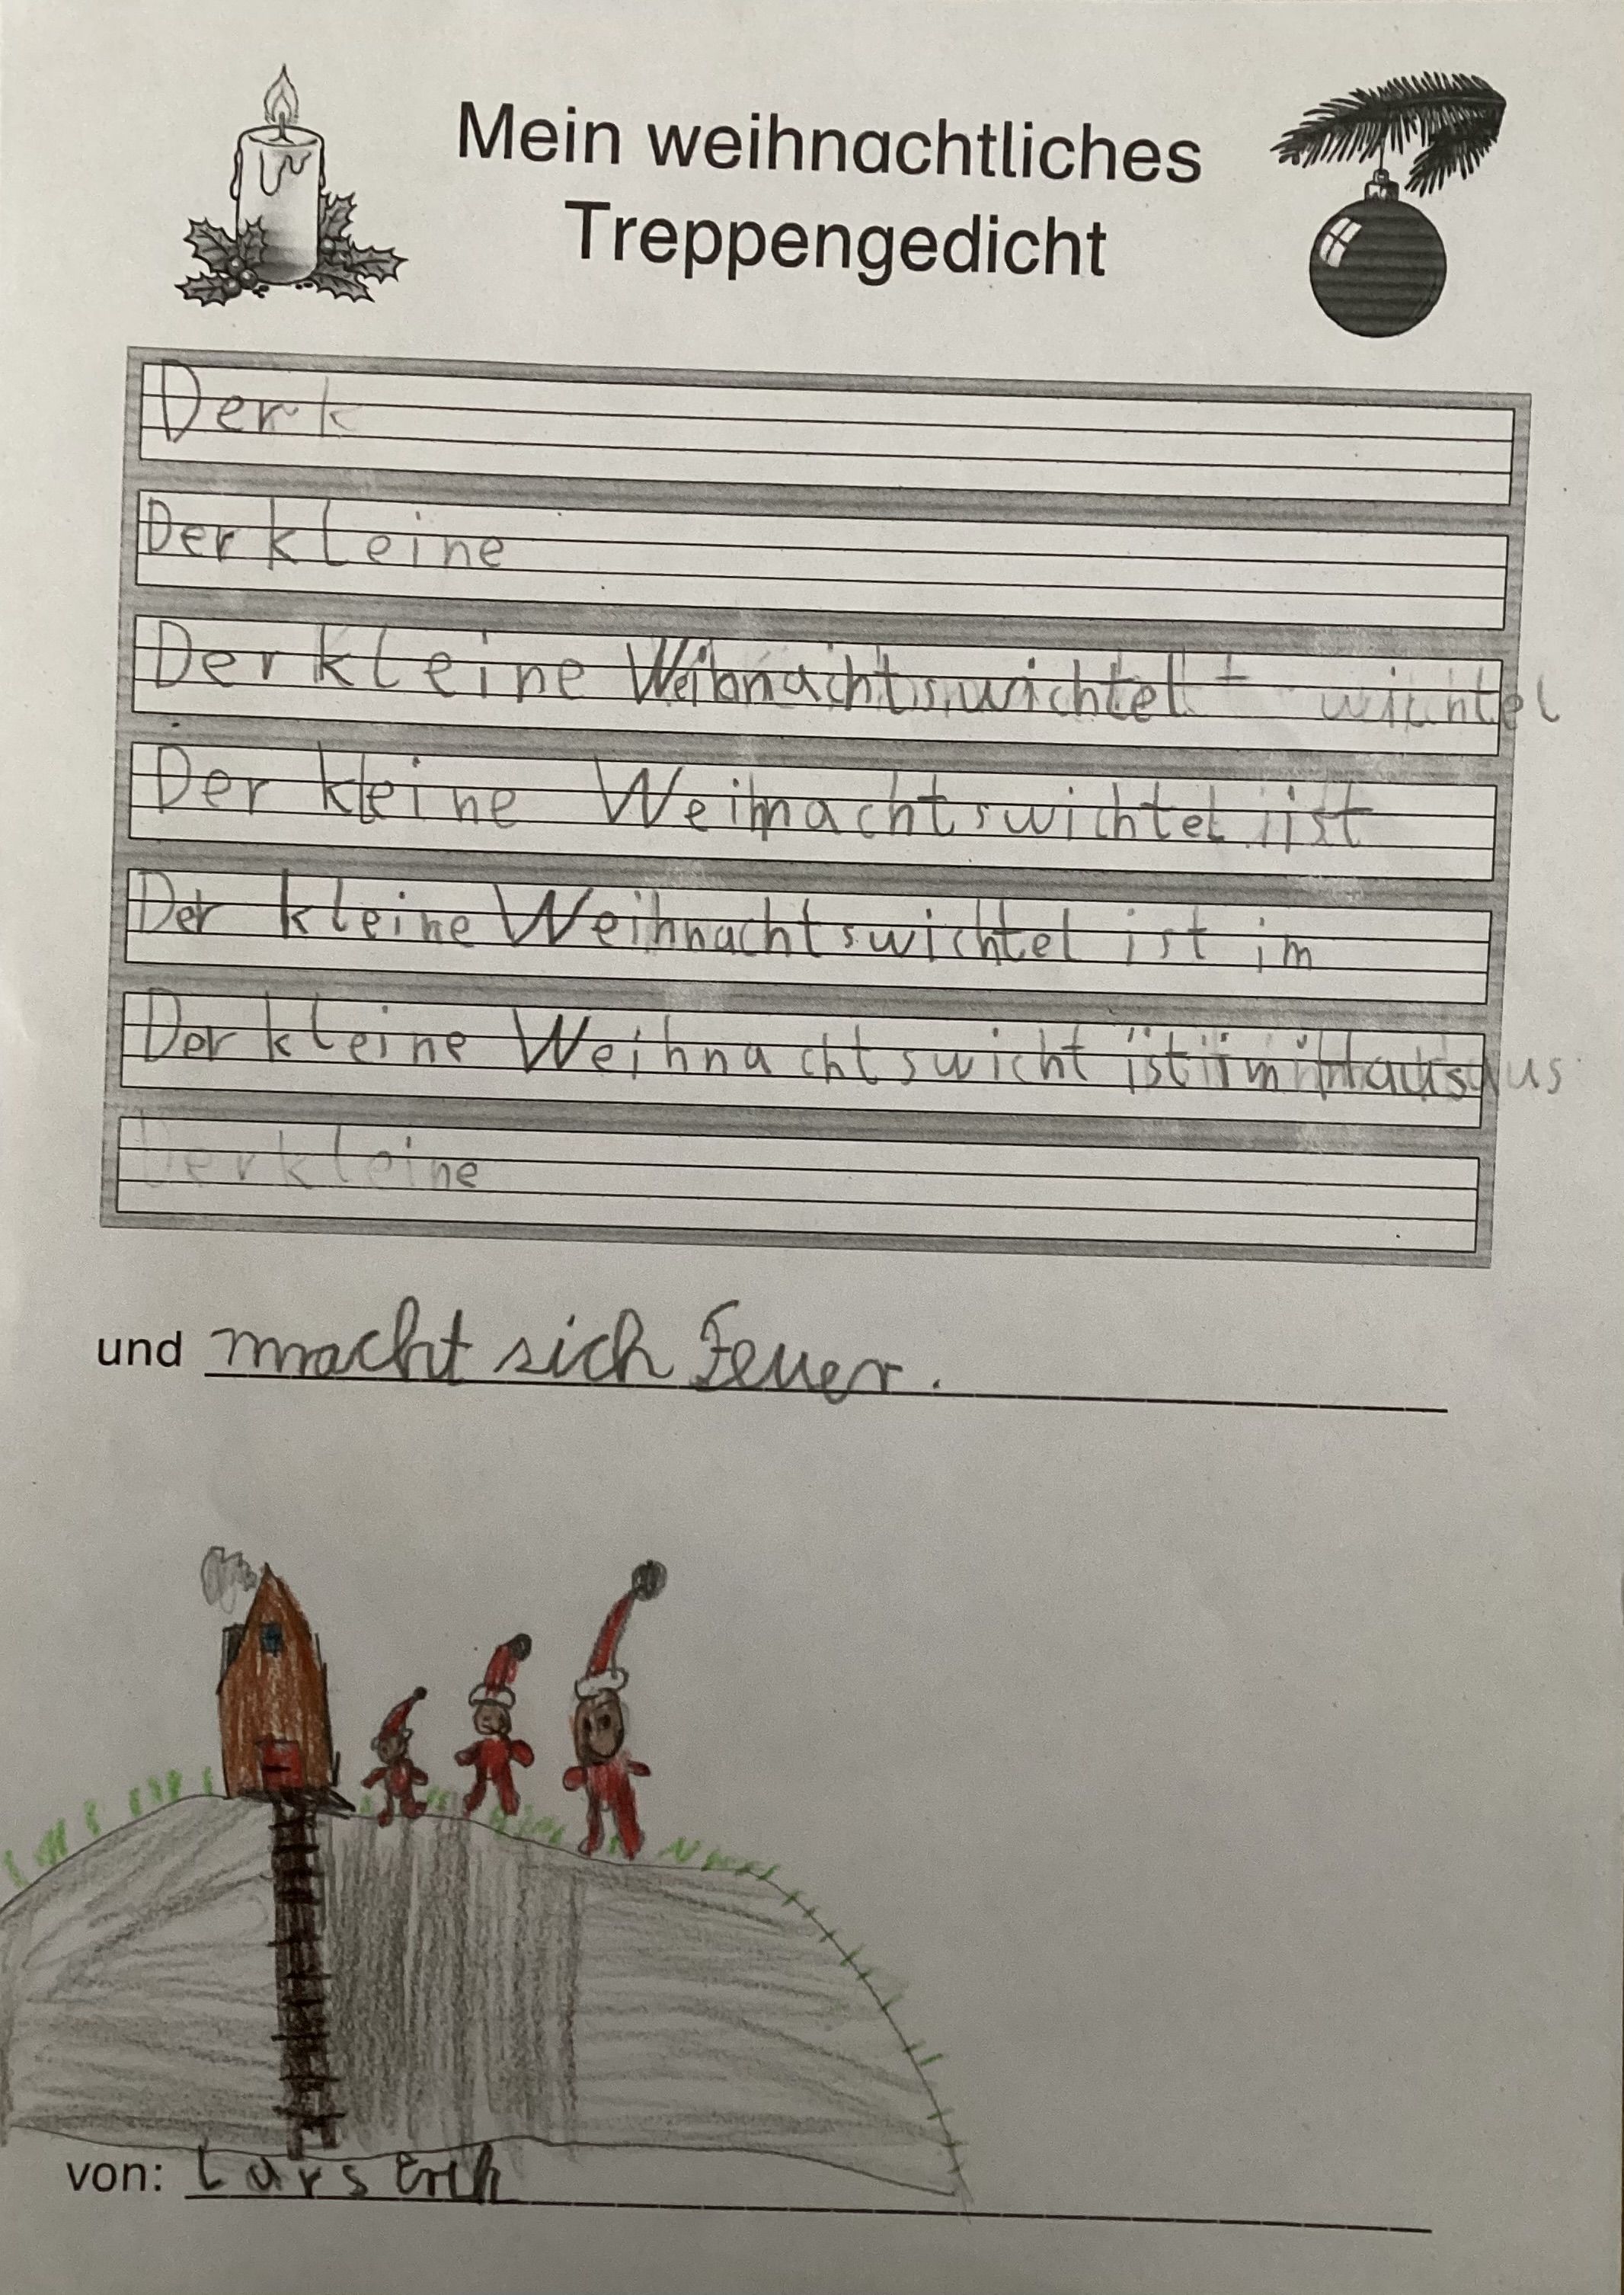 Mein weihnachtliches
Treppengedicht
Der k
Der kleine
Der kleine Weihnachtswichtel wichtel
Der kleine Weihnachtswichtel ist
Der kleine Weihnachtswichtel ist im
Der kleine Weihnachtswicht ist im Haus
Der kleine
und macht sich Feuer.
von: Lars Erik